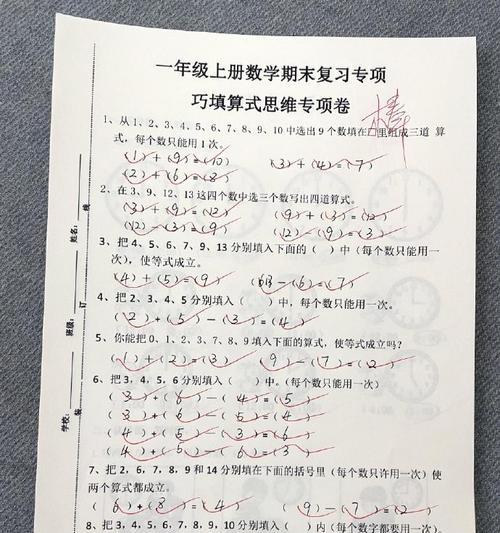 一年级上册数学期末复习专项
巧填算式思维专项卷
棒
1、从 1、2、3、4、5、6、7、8、9、10 中选出 9 个数填在□里组成三道 算
式，每个数只能用 1 次。
(1)+(9)=(10) (3)+(4)=(7)
(2)+(6)=(8)
2、在 3、9、12、13 这四个数中选三个数写出四道算式。
(3)+(9)=(12) (9)+(3)=(12)
(12)-(3)=(9) (12)-(9)=(3)
3、把 4、5、6、7、9、13 分别填入下面的（ ）中（每个数只能用一
次），使等式成立。
(4)+(5)=(9) (13)-(6)=(7)
4、把 2、3、4、5 分别填入（ ）中，每个数只能用一次。
(2)+(5)-(3)=(4)
5、你能把 0、1、2、3、7、8、9 填入下面的算式，使等式成立吗？
(1)+(2)=(3) (9)-(7)=(2)
6、把 3、4、5、6 分别填入（ ）中。（每个数只能用一次）
(3)+(6)-(4)=(5)
(3)+(6)-(5)=(4)
(4)+(5)-(3)=(6)
(4)+(5)-(6)=(3)
7、把 2、6、7、8、9 和 14 分别填在下面的括号里（每个数只许用一次）使
两个算式都成立。
(6)+(8)=(4) (9)-(7)=(2)
8、把 3、4、5、6、7、8、9、10 分别填入（ ）内（每个数字都要用一次）。
姓名：
班级：
学校：
线
订
装